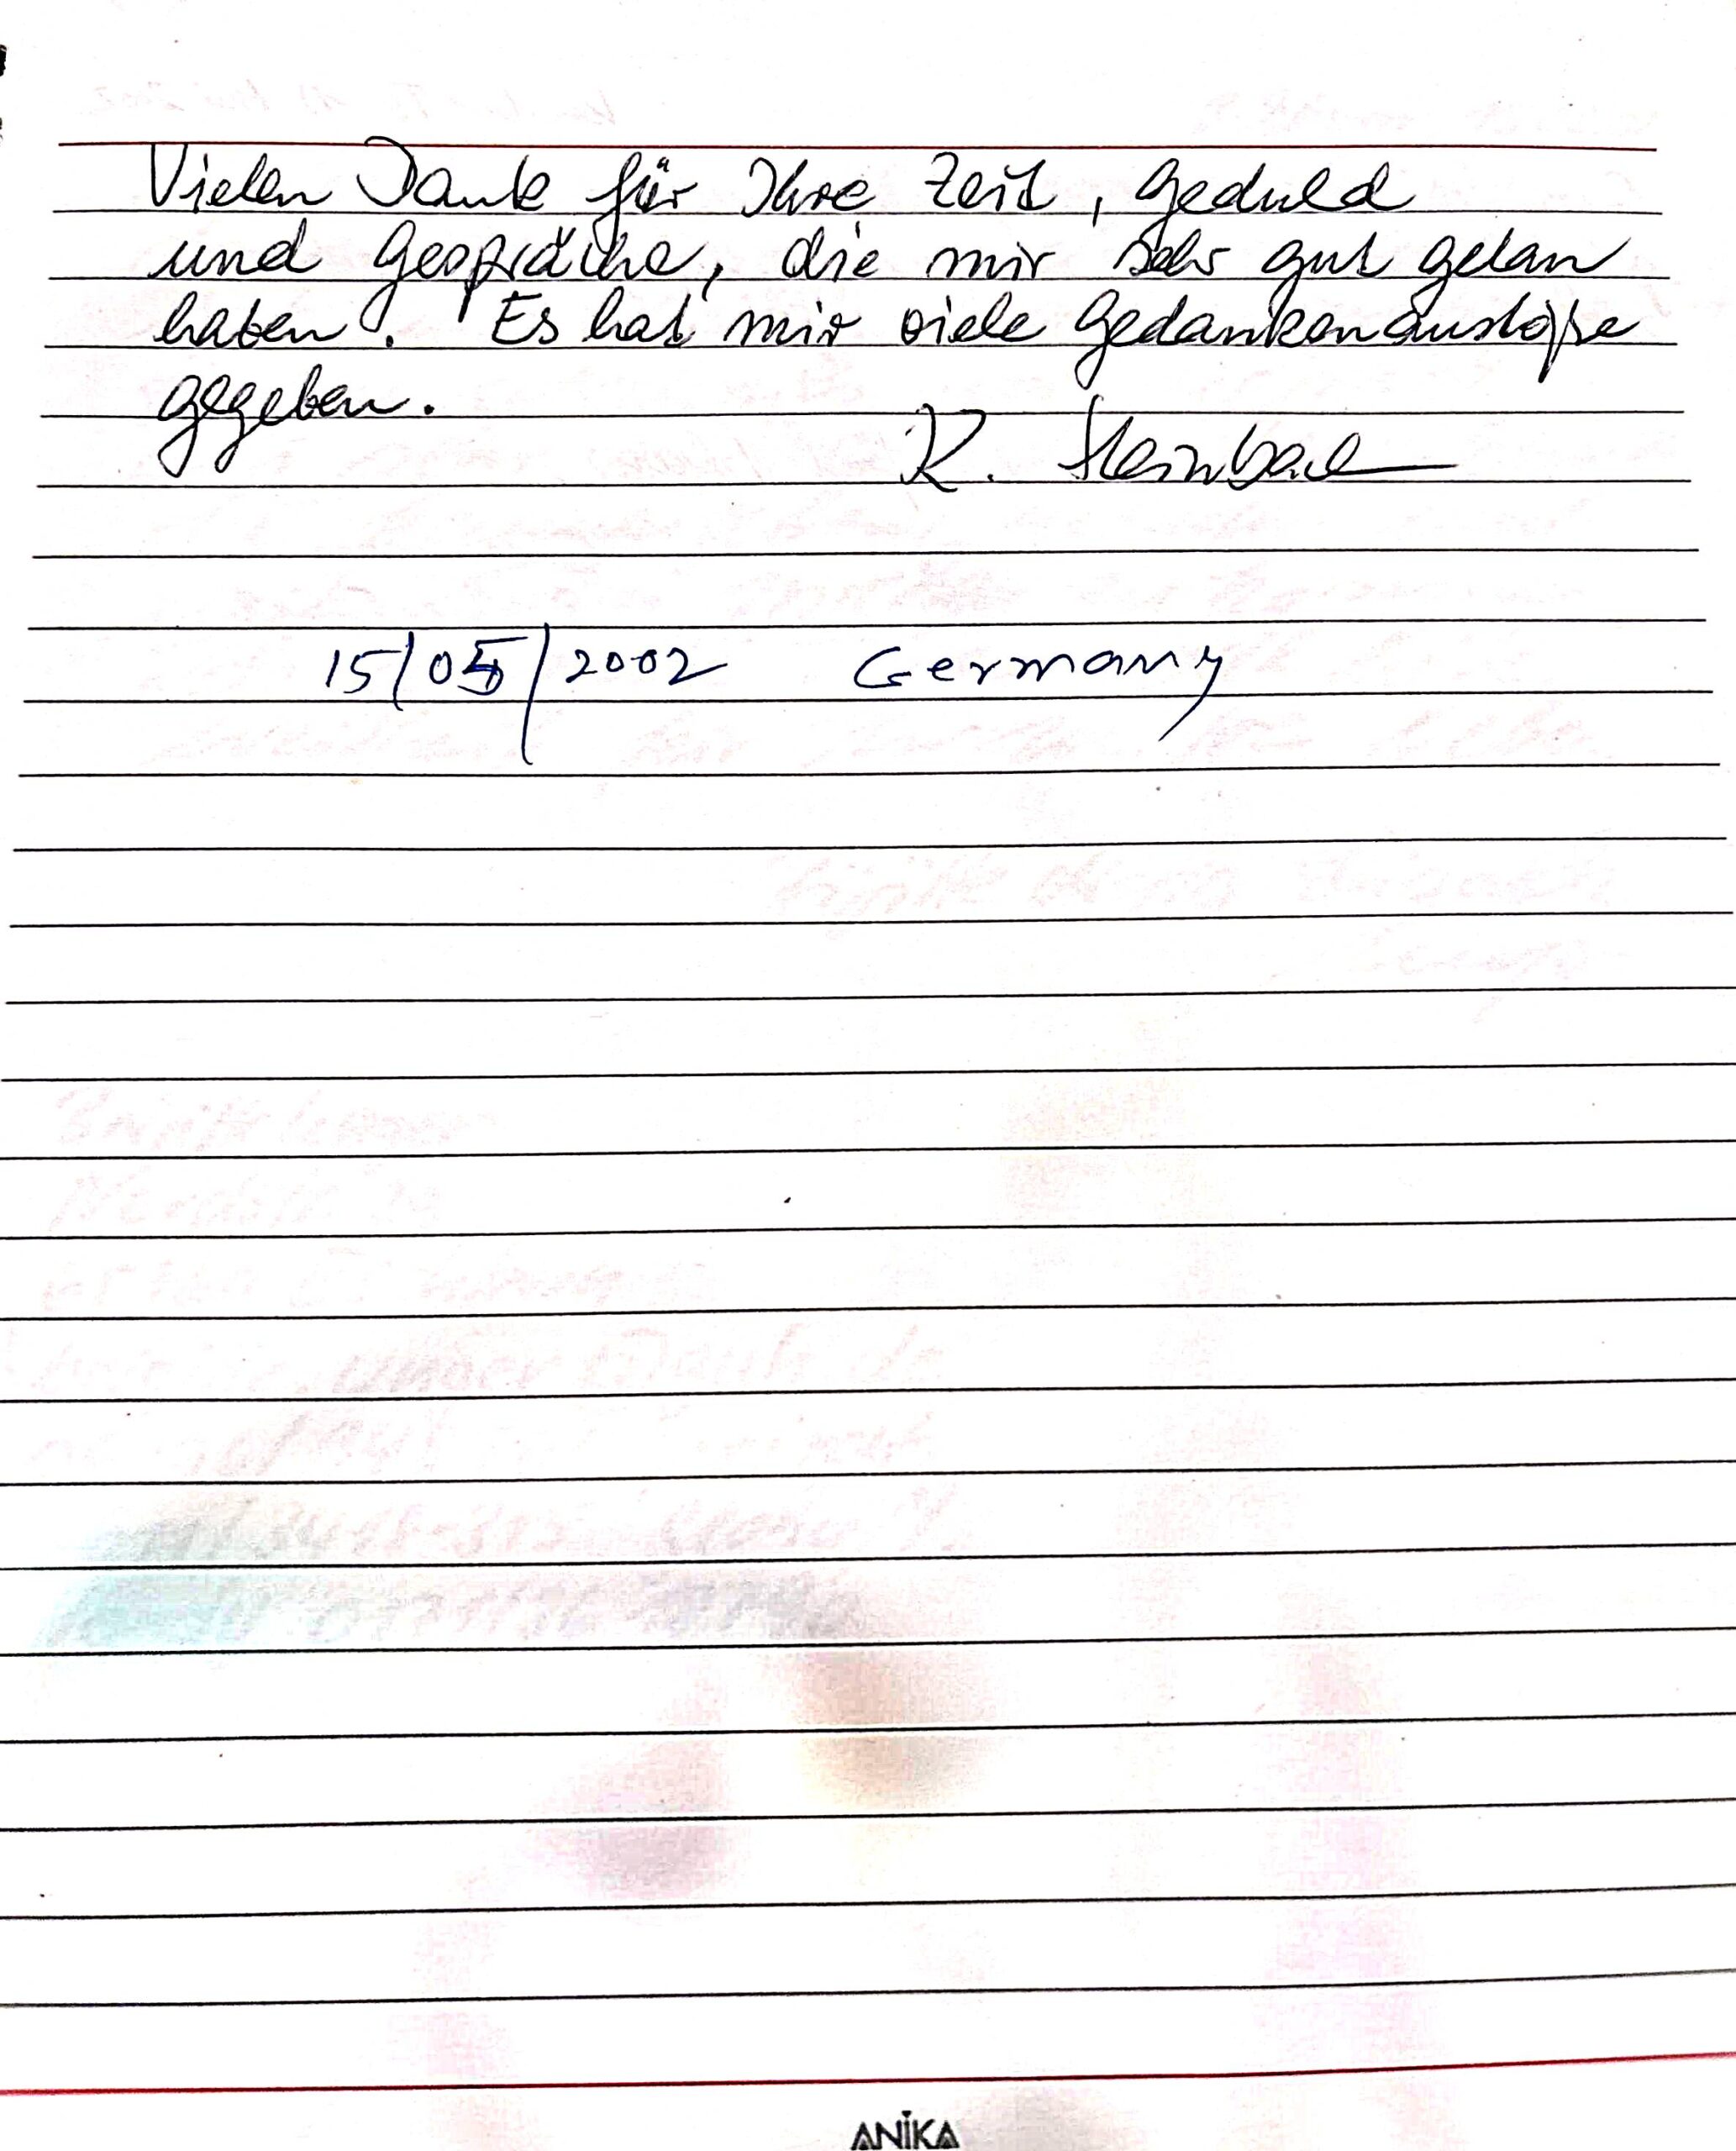 Vielen Dank für Ihre Zeit, Geduld
und Gespräche, die mir sehr gut getan
haben. Es hat mir viele Gedankenanstöße
gegeben.
K. Steinbach
15/05/2002 Germany
ANIKA